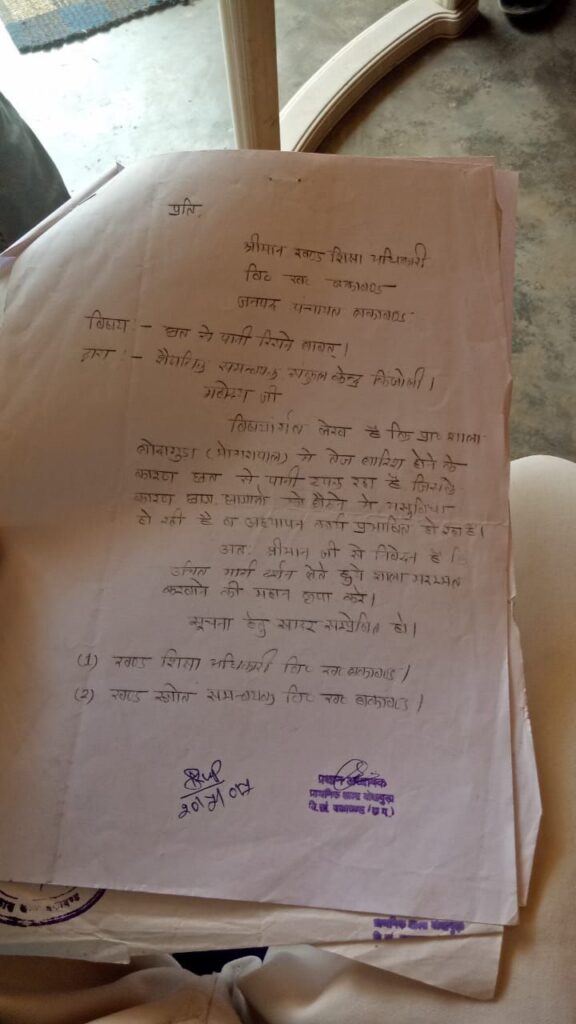 प्रति,
श्रीमान खण्ड शिक्षा अधिकारी
वि० ख० बकावण्ड
जनपद पंचायत बकावण्ड
विषय :- छत से पानी रिसने बाबत्।
द्वारा :- शैक्षणिक समन्वयक संकुल केन्द्र किंजोली।
महोदय जी
विषयांर्गत लेख है कि प्रा० शाला
बोदागुडा (प्रेंगरापाल) में तेज बारिश होने के
कारण छत से पानी टपक रहा है जिसके
कारण छात्र छात्राओं को बैठने में असुविधा
हो रही है व अध्यापन कार्य प्रभावित हो रहा है।
अतः श्रीमान जी से निवेदन है कि
उचित मार्ग दर्शन लेते हुये शाला मरम्मत
करवाने की महान कृपा करें।
सूचना हेतु सादर सम्प्रेषित हो।
(1) खण्ड शिक्षा अधिकारी वि० ख० बकावण्ड।
(2) खण्ड स्त्रोत समन्वयक वि० ख० बकावण्ड।
प्रधान अध्यापक
प्राथमिक शाला बोदागुड़ा
वि.खं. बकावण्ड (छ.ग.)
प्राथमिक शाला बोदागुड़ा